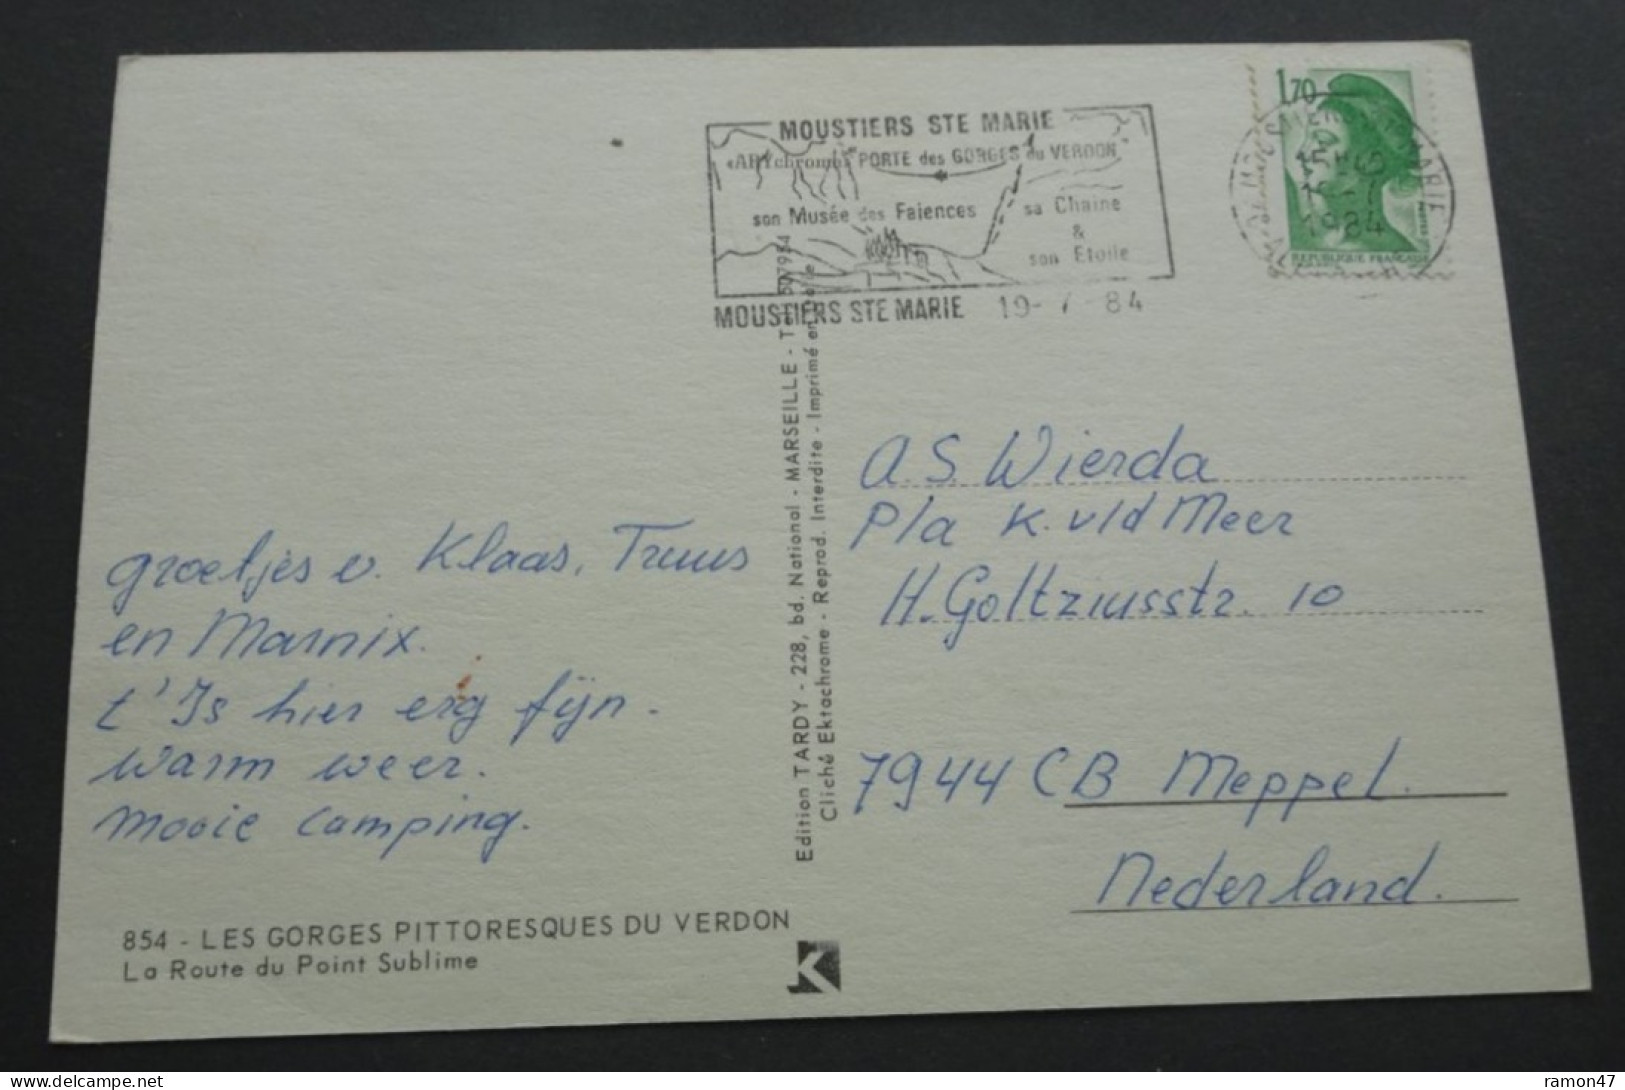 MOUSTIERS STE MARIE
«ARYchrome» PORTE des GORGES du VERDON
son Musée des Faiences
sa Chaine
&
son Etoile
MOUSTIERS STE MARIE 19-7-84
1,70
1984
REPUBLIQUE FRANÇAISE
groetjes v. Klaas, Truus
en Marnix.
t'Is hier erg fijn.
warm weer.
mooie camping.
854 - LES GORGES PITTORESQUES DU VERDON
La Route du Point Sublime
Edition TARDY - 228, bd. National - MARSEILLE - 507954
Cliché Ektachrome - Reprod. Interdite - Imprimé en
K
A.S. Wierda
p/a K. v/d Meer
H. Goltziusstr. 10
7944 CB Meppel.
Nederland.
ramon47